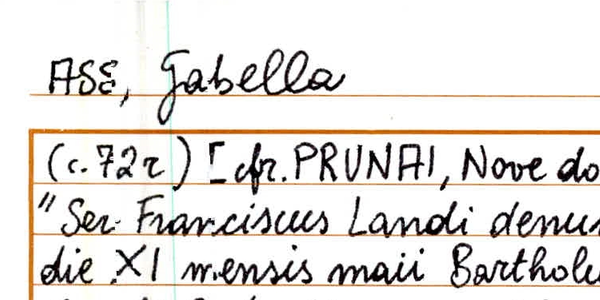 ASE, Gabella
(c. 72 r) [cfr. PRUNAI, Nove do
"Ser Franciscus Landi denu
die XI mensis maii Barthol